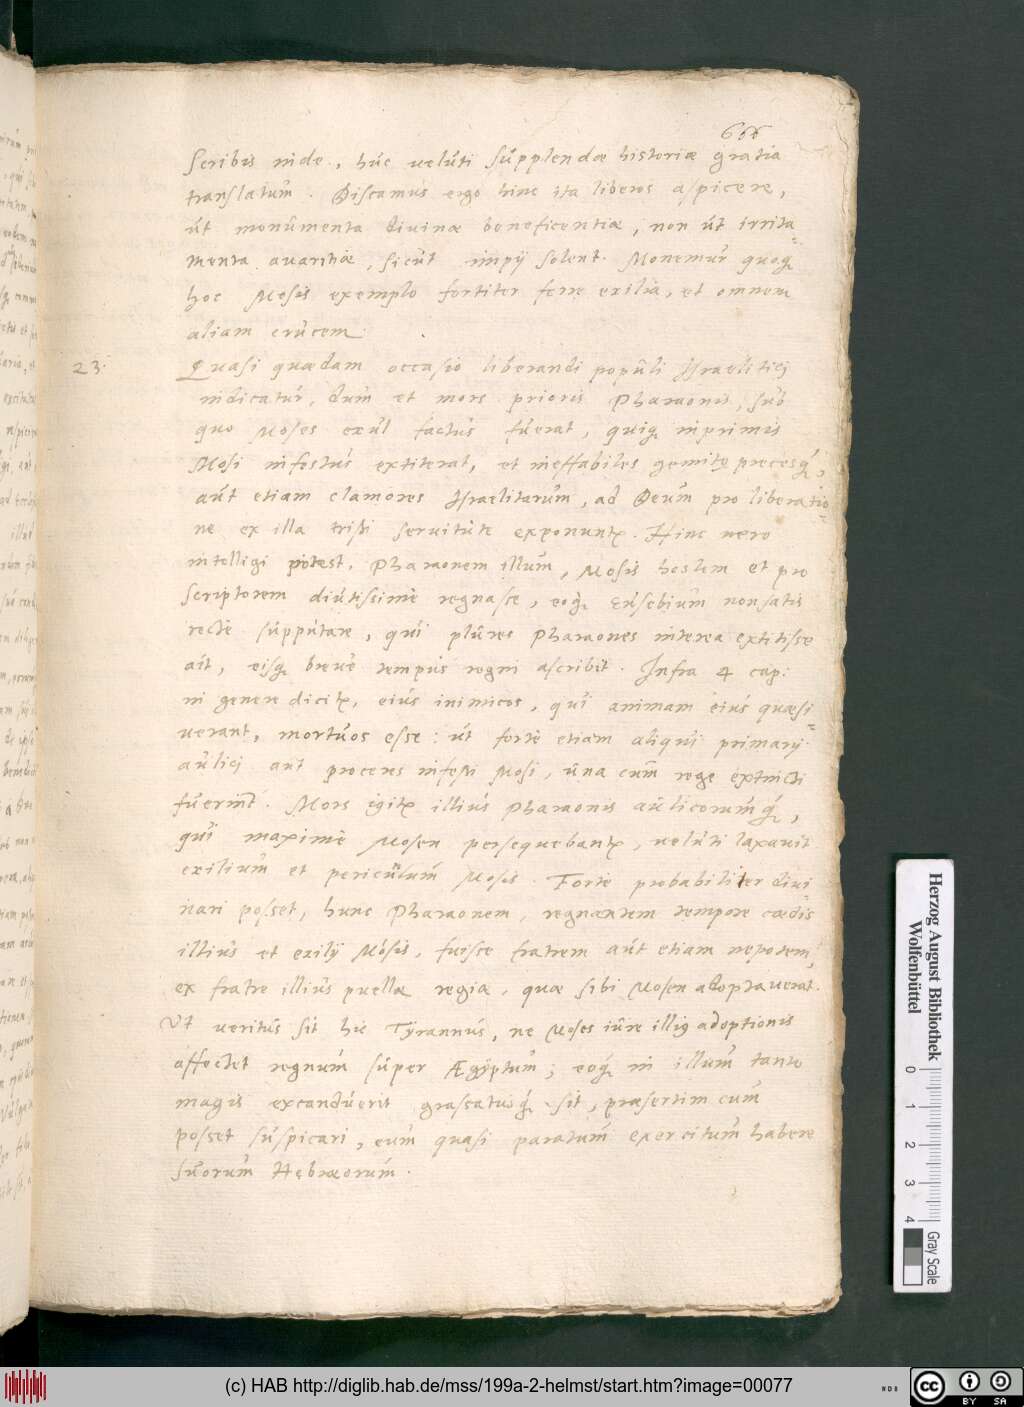 666
Scribis inde, huc veluti supplendæ historiæ gratia
translatum. Discamus ergo hinc ita liberos aspicere,
ut monumenta divinæ beneficentiæ, non ut irrita=
menta avaritiæ, sicut impij solent. Monemur quoq;
hoc Mosis exemplo fortiter ferre exilia, et omnem
aliam crucem.
23. Quasi quædam occasio liberandi populi Israelitici
indicatur, dum et mors prioris Pharaonis, sub
quo Moses exul factus fuerat, quiq; inprimis
Mosi infestus extiterat, et ineffabiles gemitus precesq;,
aut etiam clamores Israelitarum, ad Deum pro liberatio=
ne ex illa tristi servitute exponunt̃. Hinc vero
intelligi potest, Pharaonem illum, Mosis hostem et pro
scriptorem diutissimè regnasse, eoq; Eusebium non satis
rectè supputare, qui plures Pharaones interea extitisse
ait, eisq; breve tempus regni ascribit. Infra 4 cap:
in genere dicit̃, eius inimicos, qui animam eius quæsi=
verant, mortuos esse: ut fortè etiam aliqui primarij
aulici aut proceres infesti Mosi, una cum rege extincti
fuerint. Mors igit̃ illius Pharaonis aulicorumq;,
qui maximè Mosen persequebant̃, veluti laxavit
exilium et periculum Mosis. Fortè probabiliter divi
nari posset, hunc Pharaonem, regnantem tempore cædis
illius et exilij Mosis, fuisse fratrem aut etiam nepotem,
ex fratre illius puellæ regiæ, quæ sibi Mosen adoptaverat.
Ut veritus sit hic Tyrannus, ne Moses iure illiq adoptionis
affectet regnum super Ægyptum; eoq; in illum tanto
magis excanduerit grassatusq; sit, præsertim cum
posset suspicari, eum quasi paratum exercitum habere
suorum Hebræorum.
Herzog August Bibliothek
Wolfenbüttel
0 1 2 3 4
Gray Scale
(c) HAB http://diglib.hab.de/mss/199a-2-helmst/start.htm?image=00077
cc BY SA